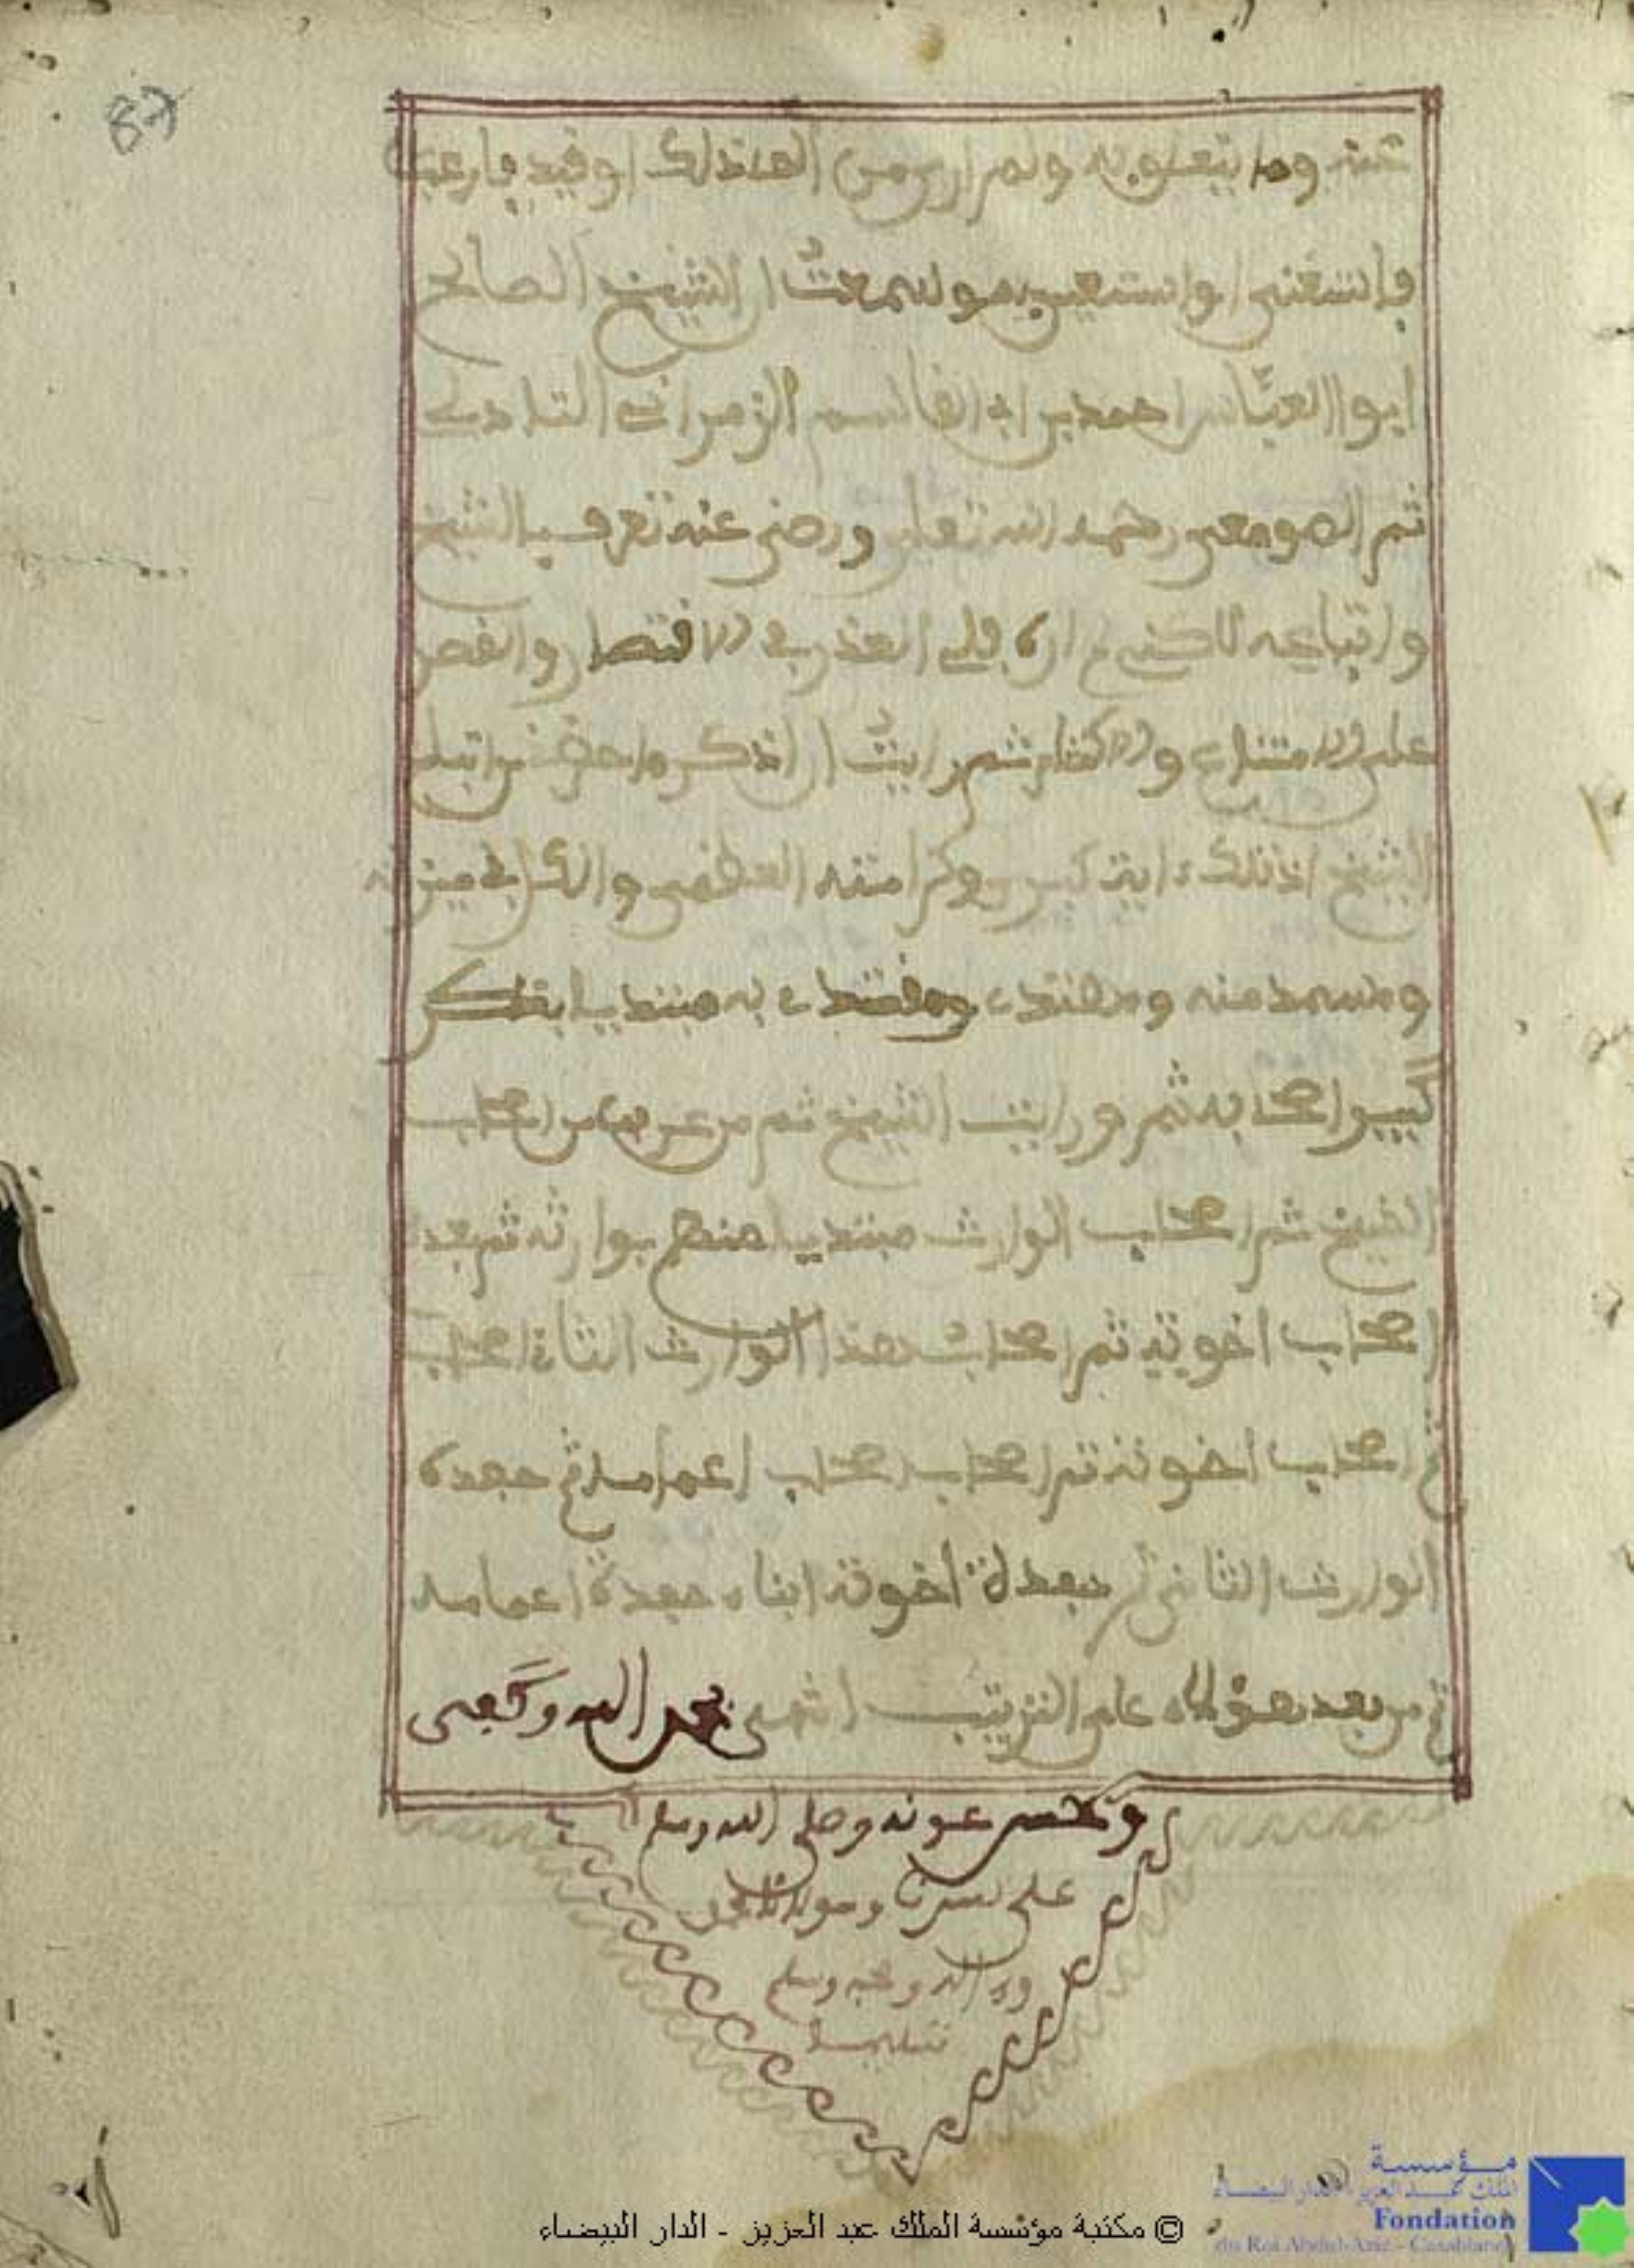 87
عنه وما يتعلق به ولم ار من الف ذلك او قيد فارغب
فاستغنى او استعين به ولو سمعت ان الشيخ الصالح
ابوا العباس احمد بن ابي القاسم الزمراني التادلي
ثم الصومعي رحمه الله تعلى ورضي عنه تعرف بالشيخ
واتباعه لاكنني لم ار فلي العذر في الاقتصار والقصر
على الامتناء والاكتفاء ثم رايت ان اذكر ما حضرني اتباع
الشيخ اذ ذلك اية كبيرة وكرامته العظمى والكل في ميزانه
ومستمد منه ومهتد ومقتد به مبتديا بذكر
كبير اصحابه ثم ورايت الشيخ ثم من عرفت من اصحاب
الشيخ ثم اصحاب الوارث مبتديا منهم بوارثه ثم بعد
اصحاب اخوته ثم اصحاب هذا الوارث الثاني اصحاب
ثم اصحاب اخوته ثم اصحاب اصحاب اعمامه ثم حفدة
الوارث الثاني ثم حفدة اخوته ابناء حفدة اعمامه
ثم من بعد هؤلاء على الترتيب انتهى بحمد الله وكفى
وبحسن عونه وصلى الله وسلم
على سيدنا ومولانا محمد
وءاله وصحبه وسلم
تسليما
© مكتبة مؤسسة الملك عبد العزيز - الدار البيضاء
مؤسسة
الملك عبد العزيز الدار البيضاء
Fondation
du Roi Abdul-Aziz - Casablanca